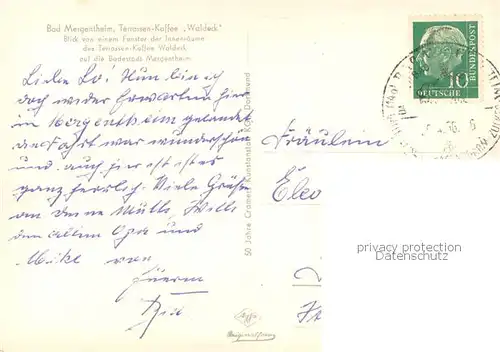 Bad Mergentheim, Terrassen-Kaffee „Waldeck"
Blick von einem Fenster der Innenräume
des Terrassen-Kaffee Waldeck
auf die Badestadt Mergentheim
Liebe Lo! Nun bin ich
doch wider Erwarten hier
in Mergentheim gelandet
die Fahrt war wunderschön
und auch hier ist es
ganz herrlich. Viele Grüße
an deine Mutti,
den alten Opa und
von
50 Jahre Cramers Kunstanstalt KG, Dortmund
Agfa
10
DEUTSCHE
BUNDESPOST
Fräulein
privacy protection